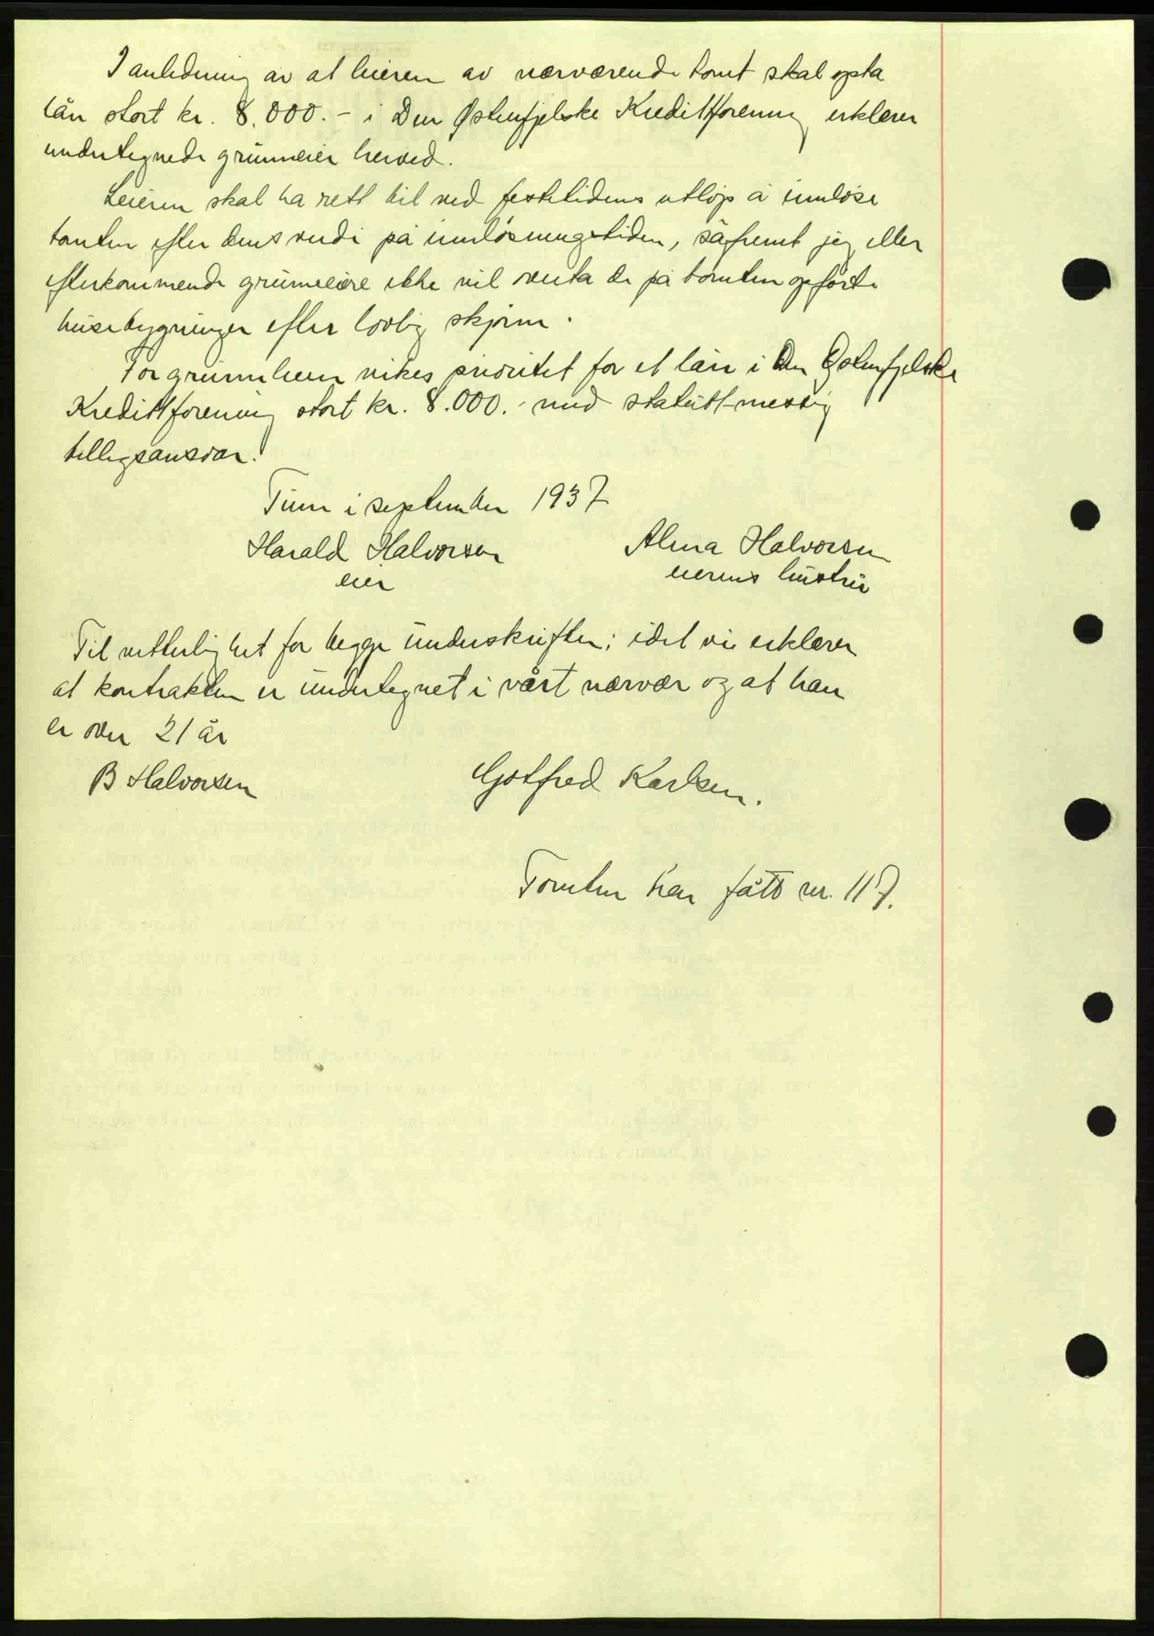 I anledning av at leieren av nærværende tomt skal opta
lån stort kr. 8.000.- i Den Østenfjelske Kredittforening erklærer
undertegnede grunneier herved.
Leieren skal ha rett til ved festetidens utløp å innløse
tomten efter dens verdi på innløsningstiden, såfremt jeg eller
efterkommende grunneiere ikke vil overta de på tomten opførte
husebygninger efter lovlig skjønn.
For grunnleien vikes prioritet for et lån i Den Østenfjelske
Kredittforening stort kr. 8.000.- med statutt-messig
tilleggsansvar.
Tune i september 1937
Harald Halvorsen Alma Halvorsen
eier eierens hustru
Til vitterlighet for begge underskrifter; idet vi erklærer
at kontrakten er undertegnet i vårt nærvær og at han
er over 21 år
B Halvorsen Gotfred Karlsen.
Tomten har fått nr. 117.